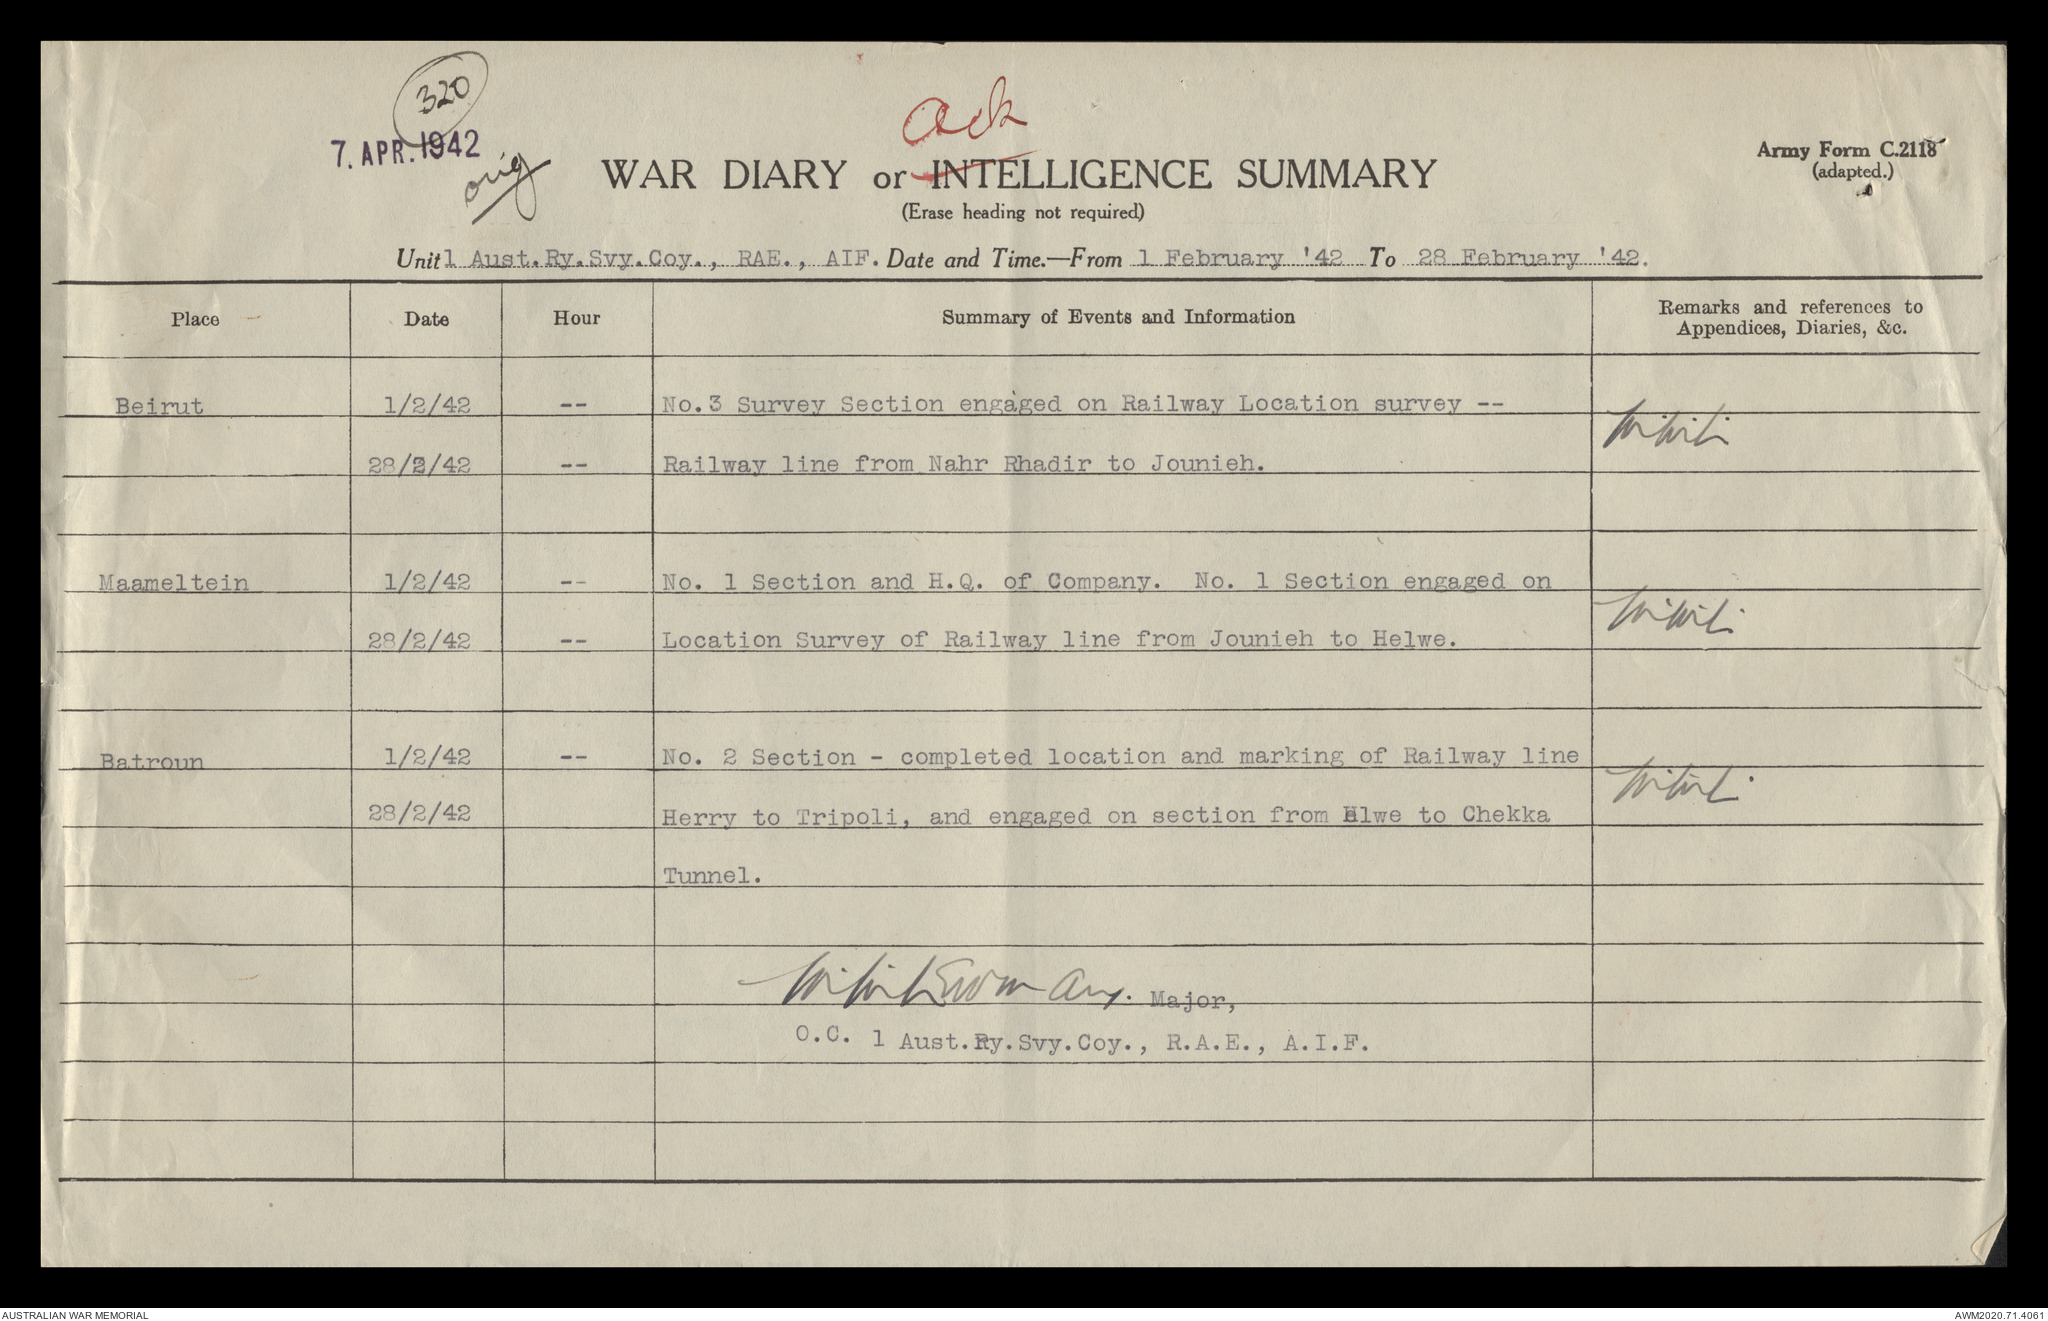 320
Ack
7. APR. 1942
orig
WAR DIARY or INTELLIGENCE SUMMARY
(Erase heading not required)
Army Form C.2118
(adapted.)
Unit 1 Aust.Ry.Svy.Coy., RAE., AIF. Date and Time.—From 1 February '42 To 28 February '42.
Place Date Hour Summary of Events and Information Remarks and references to
Appendices, Diaries, &c.
Beirut 1/2/42 -- No.3 Survey Section engaged on Railway Location survey --
28/2/42 -- Railway line from Nahr Rhadir to Jounieh.
Maameltein 1/2/42 -- No. 1 Section and H.Q. of Company. No. 1 Section engaged on
28/2/42 -- Location Survey of Railway line from Jounieh to Helwe.
Batroun 1/2/42 -- No. 2 Section - completed location and marking of Railway line
28/2/42 Herry to Tripoli, and engaged on section from Helwe to Chekka
Tunnel.
Major,
O.C. 1 Aust.Ry.Svy.Coy., R.A.E., A.I.F.
AUSTRALIAN WAR MEMORIAL AWM2020.71.4061